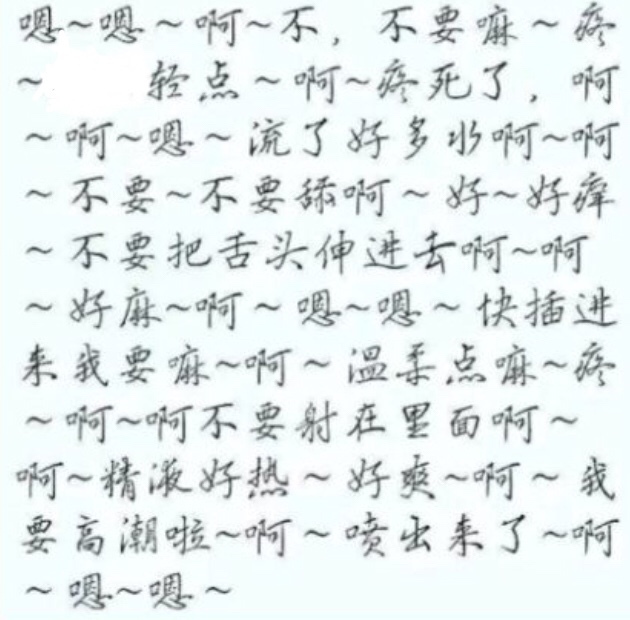 嗯~嗯~啊~不，不要嘛~疼
~轻点~啊~疼死了，啊
~啊~嗯~流了好多水啊~啊
~不要~不要舔啊~好~好痒
~不要把舌头伸进去啊~啊
~好麻~啊~嗯~嗯~快插进
来我要嘛~啊~温柔点嘛~疼
~啊~啊不要射在里面啊~
啊~精液好热~好爽~啊~我
要高潮啦~啊~喷出来了~啊
~嗯~嗯~